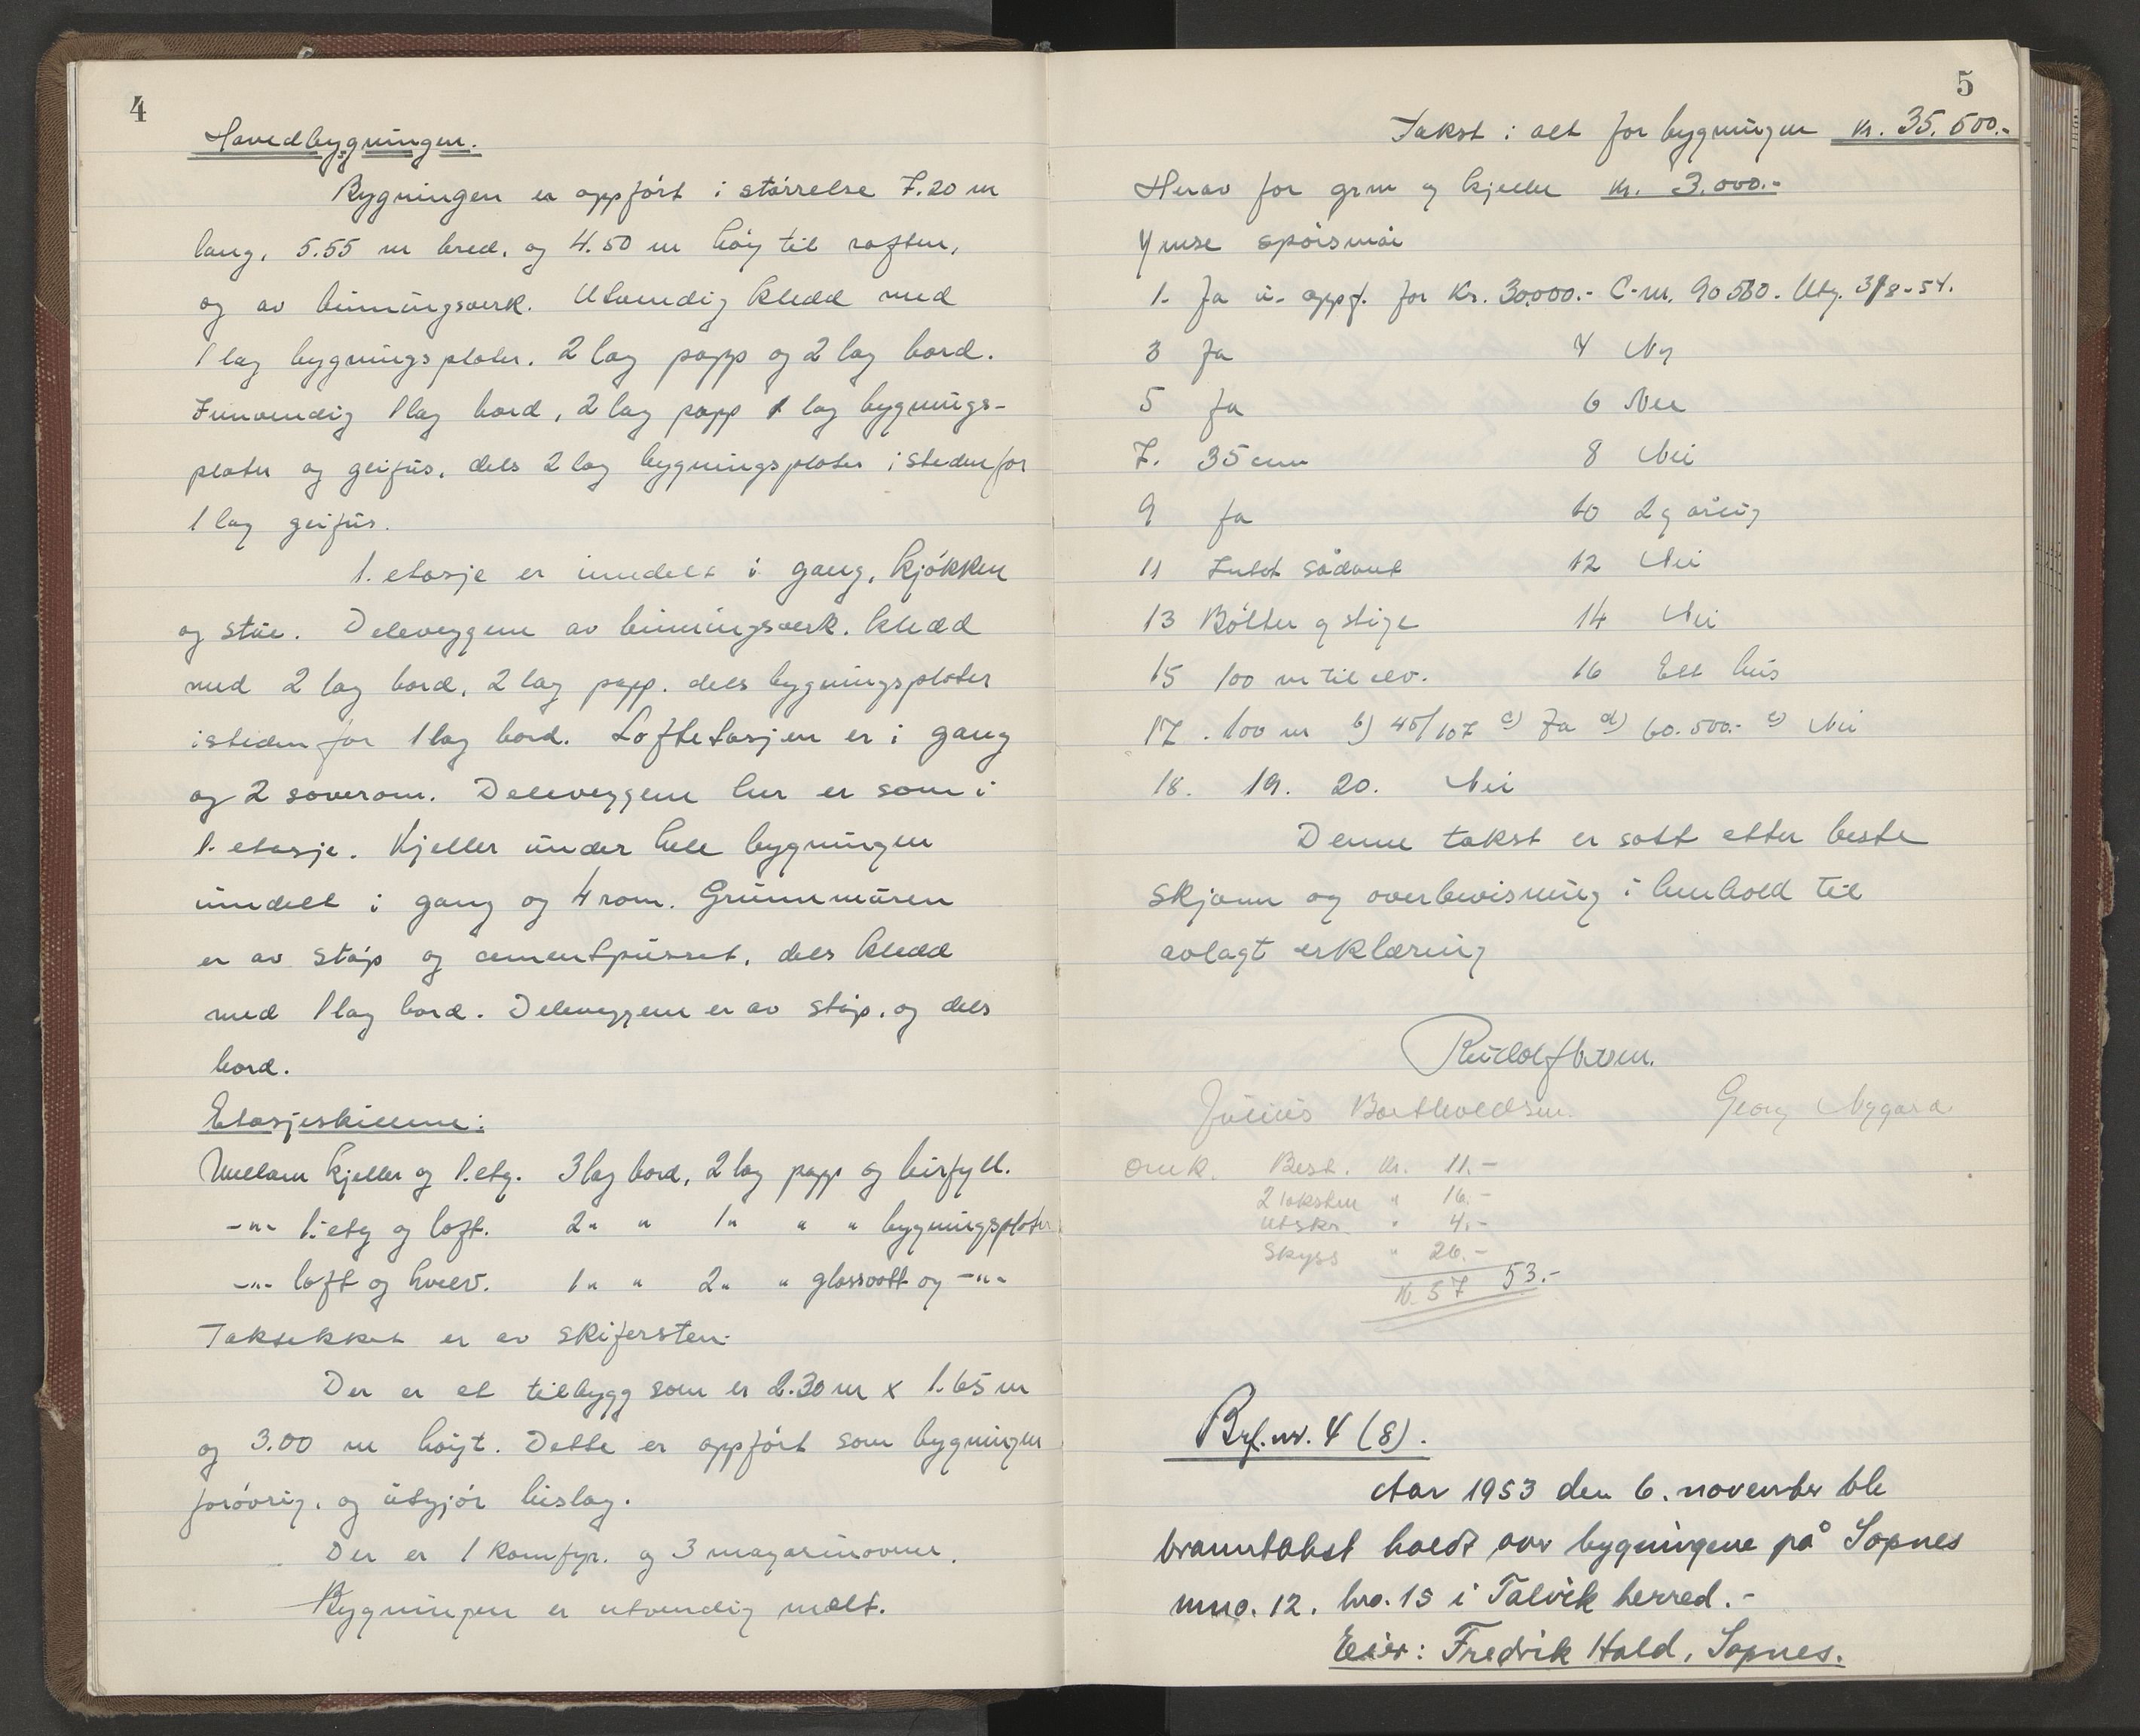 4
Hovedbygningen.
Bygningen er oppført i størrelse 7.20 m
lang, 5.55 m bred, og 4.50 m høy til raften,
og av binningsverk. Utvendig kledd med
1 lag bygningsplater. 2 lag papp og 2 lag bord.
Innvendig 1 lag bord, 2 lag papp 1 lag bygnings-
plater og geifus, dels 2 lag bygningsplater istedenfor
1 lag geifus.
1. etasje er inndelt i gang, kjøkken
og stue. Deleveggene av binningsverk. kledd
med 2 lag bord, 2 lag papp. dels bygningsplater
istedenfor 1 lag bord. Loftetasjen er i gang
og 2 soverom. Deleveggene her er som i
1. etasje. Kjeller under hele bygningen
inndelt i gang og 4 rom. Grunnmuren
er av støp og cementpusset, dels kledd
med 1 lag bord. Deleveggene er av støp, og dels
bord.
Etasjeskillene:
Mellom kjeller og 1. etg. 3 lag bord, 2 lag papp og leirfyll.
-"- 1. etg og loft. 2 " " 1 " " " bygningsplater
-"- loft og hvelv. 1 " " 2 " " glassvatt og -"-
Taktekket er av skifersten.
Der er et tilbygg som er 2.30 m x 1.65 m
og 3.00 m høyt. Dette er oppført som bygningen
forøvrig, og utgjør bislag.
Der er 1 komfyr. og 3 magasinovner.
Bygningen er utvendig malt.
5
Takst i alt for bygningen kr. 35.500.-
Herav for grm og kjeller kr. 3.000.-
Ymse spørsmål
1. Ja u. oppf. for Kr. 30.000.- C-nr. 90560. Utg. 31/8-54.
3 Ja 4 Ny
5 Ja 6 Nei
7. 35 cm 8 Nei
9 Ja 10 2 g årlig
11 Intet sådant 12 Nei
13 Bøtter og stige 14 Nei
15 100 m til elv. 16 Ett hus
17. 100 m b) 45/107 c) Ja d) 60.500.- e) Nei
18. 19. 20. Nei
Denne takst er satt etter beste
skjønn og overbevisning i henhold til
avlagt erklæring
Julius Bertheldsen. Georg Nygård
Omk. Best. kr. 11.-
2 takstm " 16.-
utskr. " 4.-
Skyss " 26.-
kr. 57 53.-
Brf.nr. 4 (8).
Aar 1953 den 6. november ble
branntakst holdt over bygningene på Sopnes
mno. 12. bno. 15 i Talvik herred.-
Eier: Fredrik Hald, Sopnes.